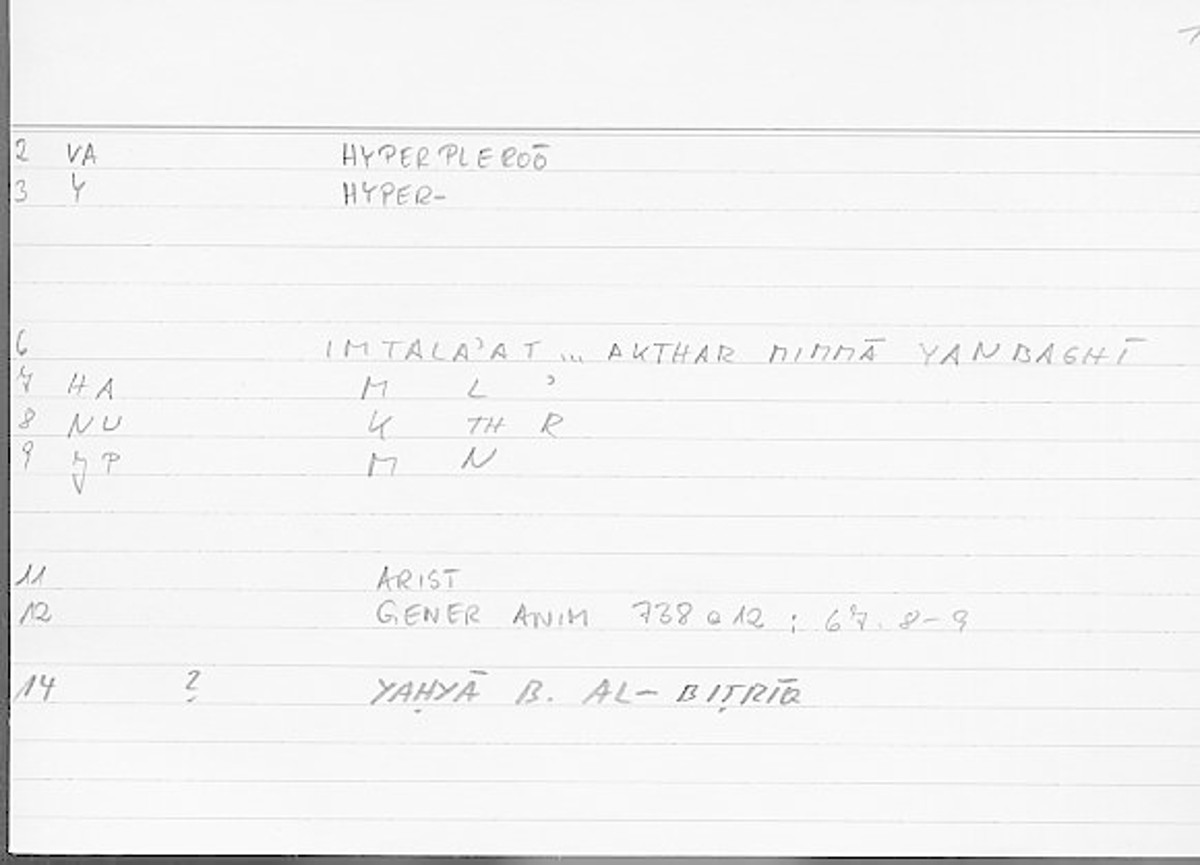 1
2 VA HYPERPLEROŌ
3 Y HYPER-
6 IMTALA'AT ... AKTHAR MIMMĀ YANBAGHĪ
7 HA M L '
8 NU K TH R
9 JP M N
11 ARIST
12 GENER ANIM 738a12 ; 67.8-9
14 ? YAḤYĀ B. AL- BIṬRĪQ